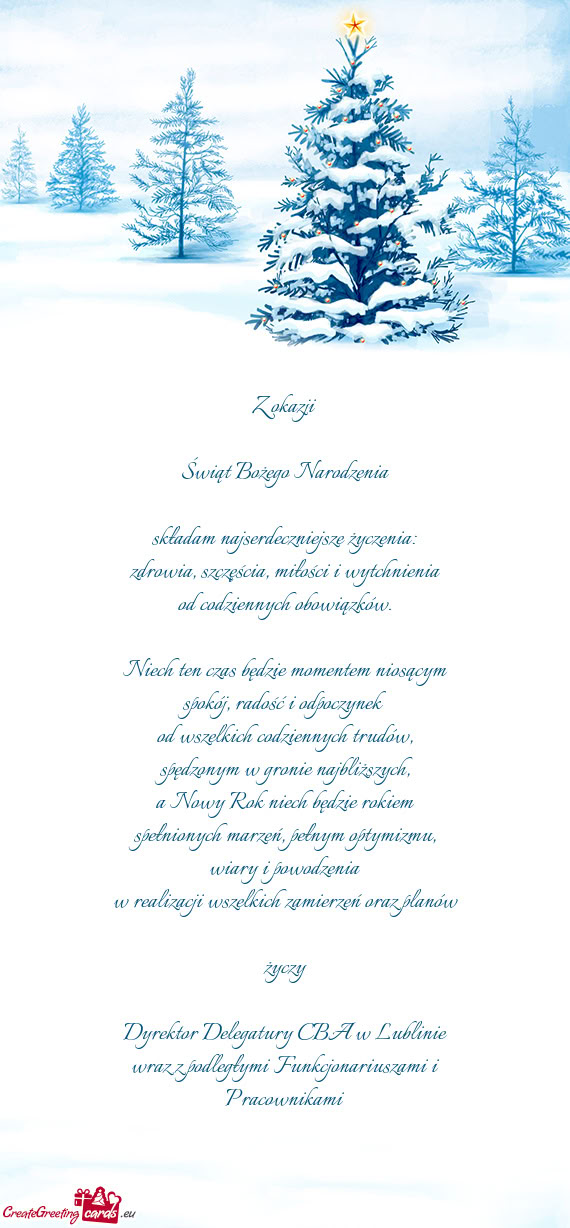 Z okazji
Świąt Bożego Narodzenia
składam najserdeczniejsze życzenia:
zdrowia, szczęścia, miłości i wytchnienia
od codziennych obowiązków.
Niech ten czas będzie momentem niosącym
spokój, radość i odpoczynek
od wszelkich codziennych trudów,
spędzonym w gronie najbliższych,
a Nowy Rok niech będzie rokiem
spełnionych marzeń, pełnym optymizmu,
wiary i powodzenia
w realizacji wszelkich zamierzeń oraz planów
życzy
Dyrektor Delegatury CBA w Lublinie
wraz z podległymi Funkcjonariuszami i
Pracownikami
CreateGreeting cards .eu